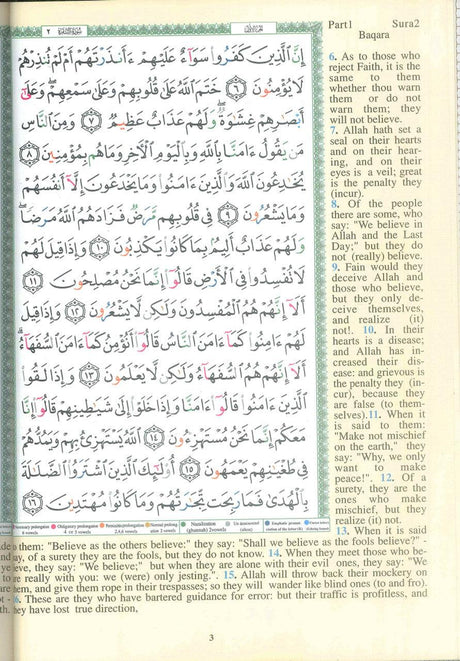 Part1 Sura2
Baqara
٢ سُورَةُ البَقَرَة الجُزْءُ الأَوَّل
إِنَّ ٱلَّذِينَ كَفَرُوا۟ سَوَآءٌ عَلَيْهِمْ ءَأَنذَرْتَهُمْ أَمْ لَمْ تُنذِرْهُمْ
لَا يُؤْمِنُونَ ٦ خَتَمَ ٱللَّهُ عَلَىٰ قُلُوبِهِمْ وَعَلَىٰ سَمْعِهِمْ ۖ وَعَلَىٰٓ
أَبْصَٰرِهِمْ غِشَٰوَةٌ ۖ وَلَهُمْ عَذَابٌ عَظِيمٌ ٧ وَمِنَ ٱلنَّاسِ
مَن يَقُولُ ءَامَنَّا بِٱللَّهِ وَبِٱلْيَوْمِ ٱلْءَاخِرِ وَمَا هُم بِمُؤْمِنِينَ ٨
يُخَٰدِعُونَ ٱللَّهَ وَٱلَّذِينَ ءَامَنُوا۟ وَمَا يَخْدَعُونَ إِلَّآ أَنفُسَهُمْ
وَمَا يَشْعُرُونَ ٩ فِى قُلُوبِهِم مَّرَضٌ فَزَادَهُمُ ٱللَّهُ مَرَضًا ۖ
وَلَهُمْ عَذَابٌ أَلِيمٌۢ بِمَا كَانُوا۟ يَكْذِبُونَ ١٠ وَإِذَا قِيلَ لَهُمْ
لَا تُفْسِدُوا۟ فِى ٱلْأَرْضِ قَالُوٓا۟ إِنَّمَا نَحْنُ مُصْلِحُونَ ١١
أَلَآ إِنَّهُمْ هُمُ ٱلْمُفْسِدُونَ وَلَٰكِن لَّا يَشْعُرُونَ ١٢ وَإِذَا قِيلَ
لَهُمْ ءَامِنُوا۟ كَمَآ ءَامَنَ ٱلنَّاسُ قَالُوٓا۟ أَنُؤْمِنُ كَمَآ ءَامَنَ ٱلسُّفَهَآءُ ۗ
أَلَآ إِنَّهُمْ هُمُ ٱلسُّفَهَآءُ وَلَٰكِن لَّا يَعْلَمُونَ ١٣ وَإِذَا لَقُوا۟
ٱلَّذِينَ ءَامَنُوا۟ قَالُوٓا۟ ءَامَنَّا وَإِذَا خَلَوْا۟ إِلَىٰ شَيَٰطِينِهِمْ قَالُوٓا۟ إِنَّا
مَعَكُمْ إِنَّمَا نَحْنُ مُسْتَهْزِءُونَ ١٤ ٱللَّهُ يَسْتَهْزِئُ بِهِمْ وَيَمُدُّهُمْ
فِى طُغْيَٰنِهِمْ يَعْمَهُونَ ١٥ أُو۟لَٰٓئِكَ ٱلَّذِينَ ٱشْتَرَوُا۟ ٱلضَّلَٰلَةَ
بِٱلْهُدَىٰ فَمَا رَبِحَت تِّجَٰرَتُهُمْ وَمَا كَانُوا۟ مُهْتَدِينَ ١٦
6. As to those who
reject Faith, it is the
same to them
whether thou warn
them or do not
warn them; they
will not believe.
7. Allah hath set a
seal on their hearts
and on their hear-
ing, and on their
eyes is a veil; great
is the penalty they
(incur).
8. Of the people
there are some, who
say: "We believe in
Allah and the Last
Day;" but they do
not (really) believe.
9. Fain would they
deceive Allah and
those who believe,
but they only de-
ceive themselves,
and realize (it)
not!. 10. In their
hearts is a disease;
and Allah has in-
creased their dis-
ease: and grievous is
the penalty they (in-
cur), because they
are false (to them-
selves).11. When it
is said to them:
"Make not mischief
on the earth," they
say: "Why, we only
want to make
peace!". 12. Of a
surety, they are the
ones who make
mischief, but they
realize (it) not.
13. When it is said
to them: "Believe as the others believe:" they say: "Shall we believe as the fools believe?" -
nay, of a surety they are the fools, but they do not know. 14. When they meet those who be-
lieve, they say: "We believe;" but when they are alone with their evil ones, they say: "We
are really with you: we (were) only jesting.". 15. Allah will throw back their mockery on
them, and give them rope in their trespasses; so they will wander like blind ones (to and fro).
16. These are they who have bartered guidance for error: but their traffic is profitless, and
they have lost true direction,
3